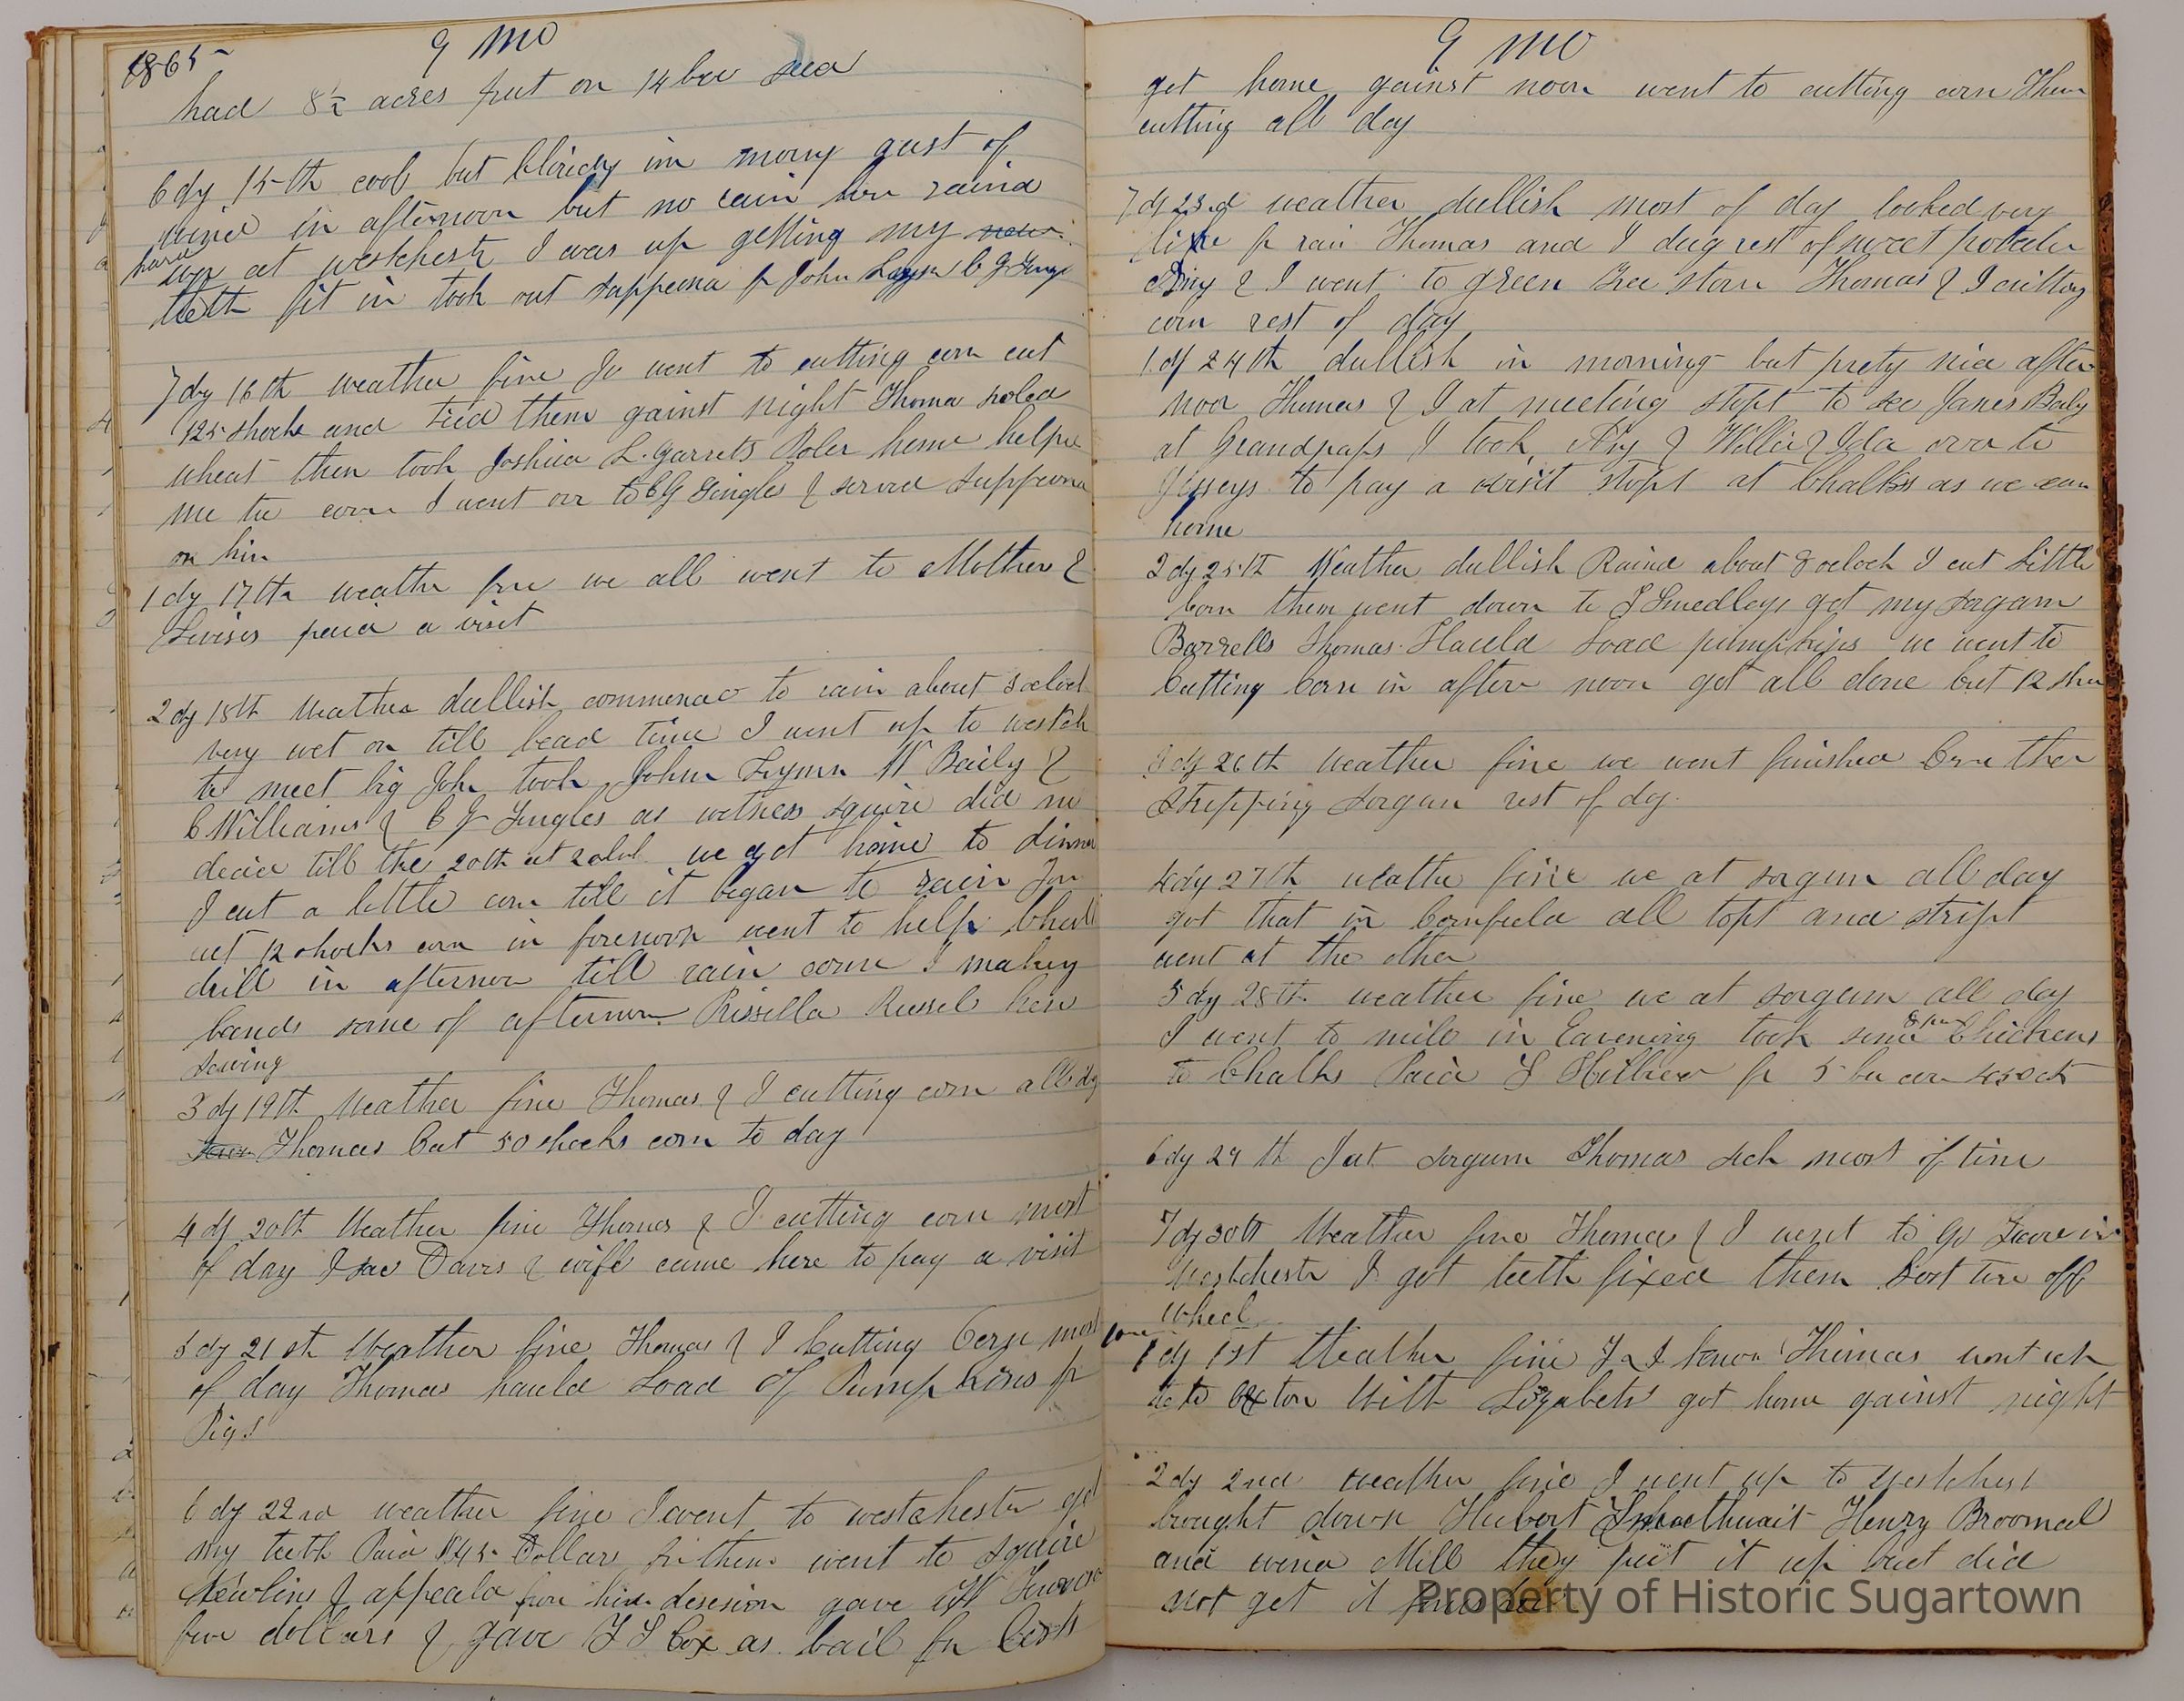 1865
9 mo
had 8½ acres put on 14 bu seed
6 dy 15th cool but cloudy in morng gust of
wind in afternoon but no rain here raind
hard up at westchestr I was up getting my new
teeth fit in took out suppeona fr John C G
7 dy 16th weather fine Jo went to cutting corn cut
125 shocks and tied them gainst night Thoma roled
wheat then took Joshua L. Garrets Roler home helpe
me tie corn I went ovr to C G Gingles & served suppeona
on him
1 dy 17th weathr fine we all went to Mother &
Lewises paid a visit
2 dy 18th Weather dullish commencd to rain about 3 oclock
very wet on till bead time I went up to westch
to meet big John took John W Baily &
C Williams & C G Gingles as witness squire did no
decide till the 20th at 2 olcl we got home to dinnr
I cut a little corn till it began to rain Jon
cut 12 shocks corn in forenoon went to help Chalk
drill in afternon till rain come I making
bands some of afternon Prissella Russel here
sewing
3 dy 19th Weather fine Thomas & I cutting corn all dy
Thomas Cut 50 shocks corn to day
4 dy 20th Weather fine Thomas & I cutting corn most
of day Isac Davis & wife came here to pay a visit
5 dy 21st Weather fine Thomas & I Cutting Corn most
of day Thomas hauld Load of Pumpkins fr
Pigs
6 dy 22nd weather fine I went to westchestr got
my teeth Paid $45 Dollars fr them went to Squire
Newlins & appeald from his desesion gave W
five dollars & gave J S Cox as bail for Costs
9 mo
get home gainst noon went to cutting corn Thom
cutting all day
7 dy 23rd weather dullish most of day looked very
like fr rain Thomas and I dug rest of sweet potatoes
Amy & I went to green Tree store Thomas & I cutting
corn rest of day
1 dy 24th dullish in morning but prety nice after
noon Thomas & I at meeting stopt to see Janes Baily
at Grandpaps I took Amy & Willie & Ida over to
Jesseys to pay a visit stopt at Chalks as we com
home
2 dy 25th Weather dullish Raind about 8 oclock I cut Little
Corn then went down to J Smedleys got my sorgam
Barrells Thomas Hauld Load pumpkins we went to
Cutting Corn in after noon got all done but 12 sho
3 dy 26th Weather fine we went finished Corn then
Stripping sorgum rest of dy
4 dy 27th weathe fine we at sorgum all day
got that in Cornfield all topt and stript
went at the other
5 dy 28th weather fine we at sorgum all day
I went to mill in Eavening took some 8 pr Chickens
to Chalks Paid J fr 5 bu corn 450 cts
6 dy 29th I at sorgum Thomas sick most of time
7 dy 30th Weather fine Thomas & I went to Go in
Westchestr I got teeth fixed them Lost tire off
wheel
10 mo
1 dy 1st Weather fine Thomas went
to Oxton With Lizabeth got home gainst night
2 dy 2nd weather fine I went up to Westchest
brought down Hubert Smoothwait Henry Broomal
and wind Mill they put it up but did
not get it
Property of Historic Sugartown